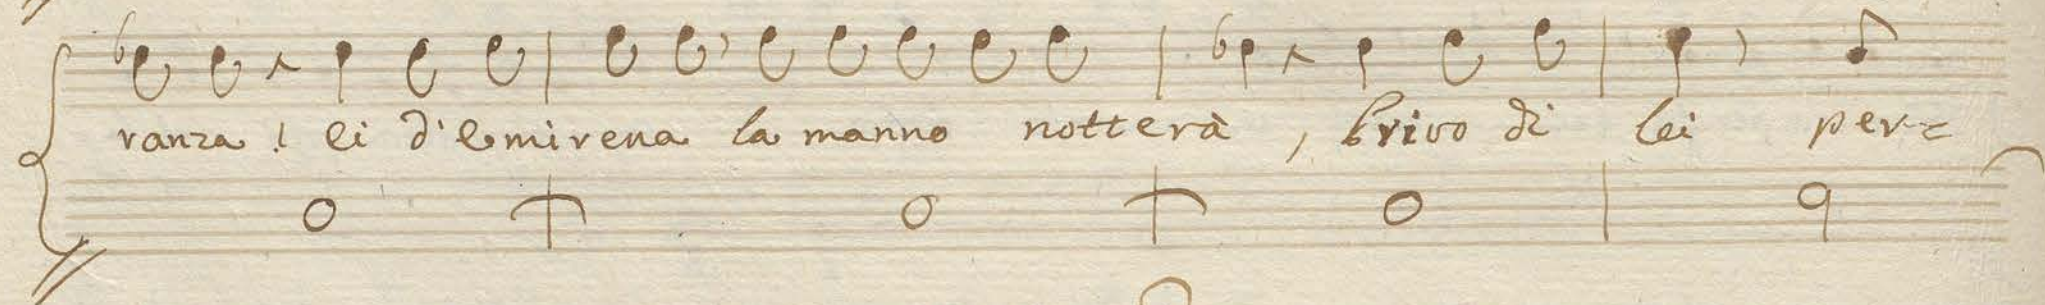 ranza! ei d'emirena la manno notterà, privo di lei per=